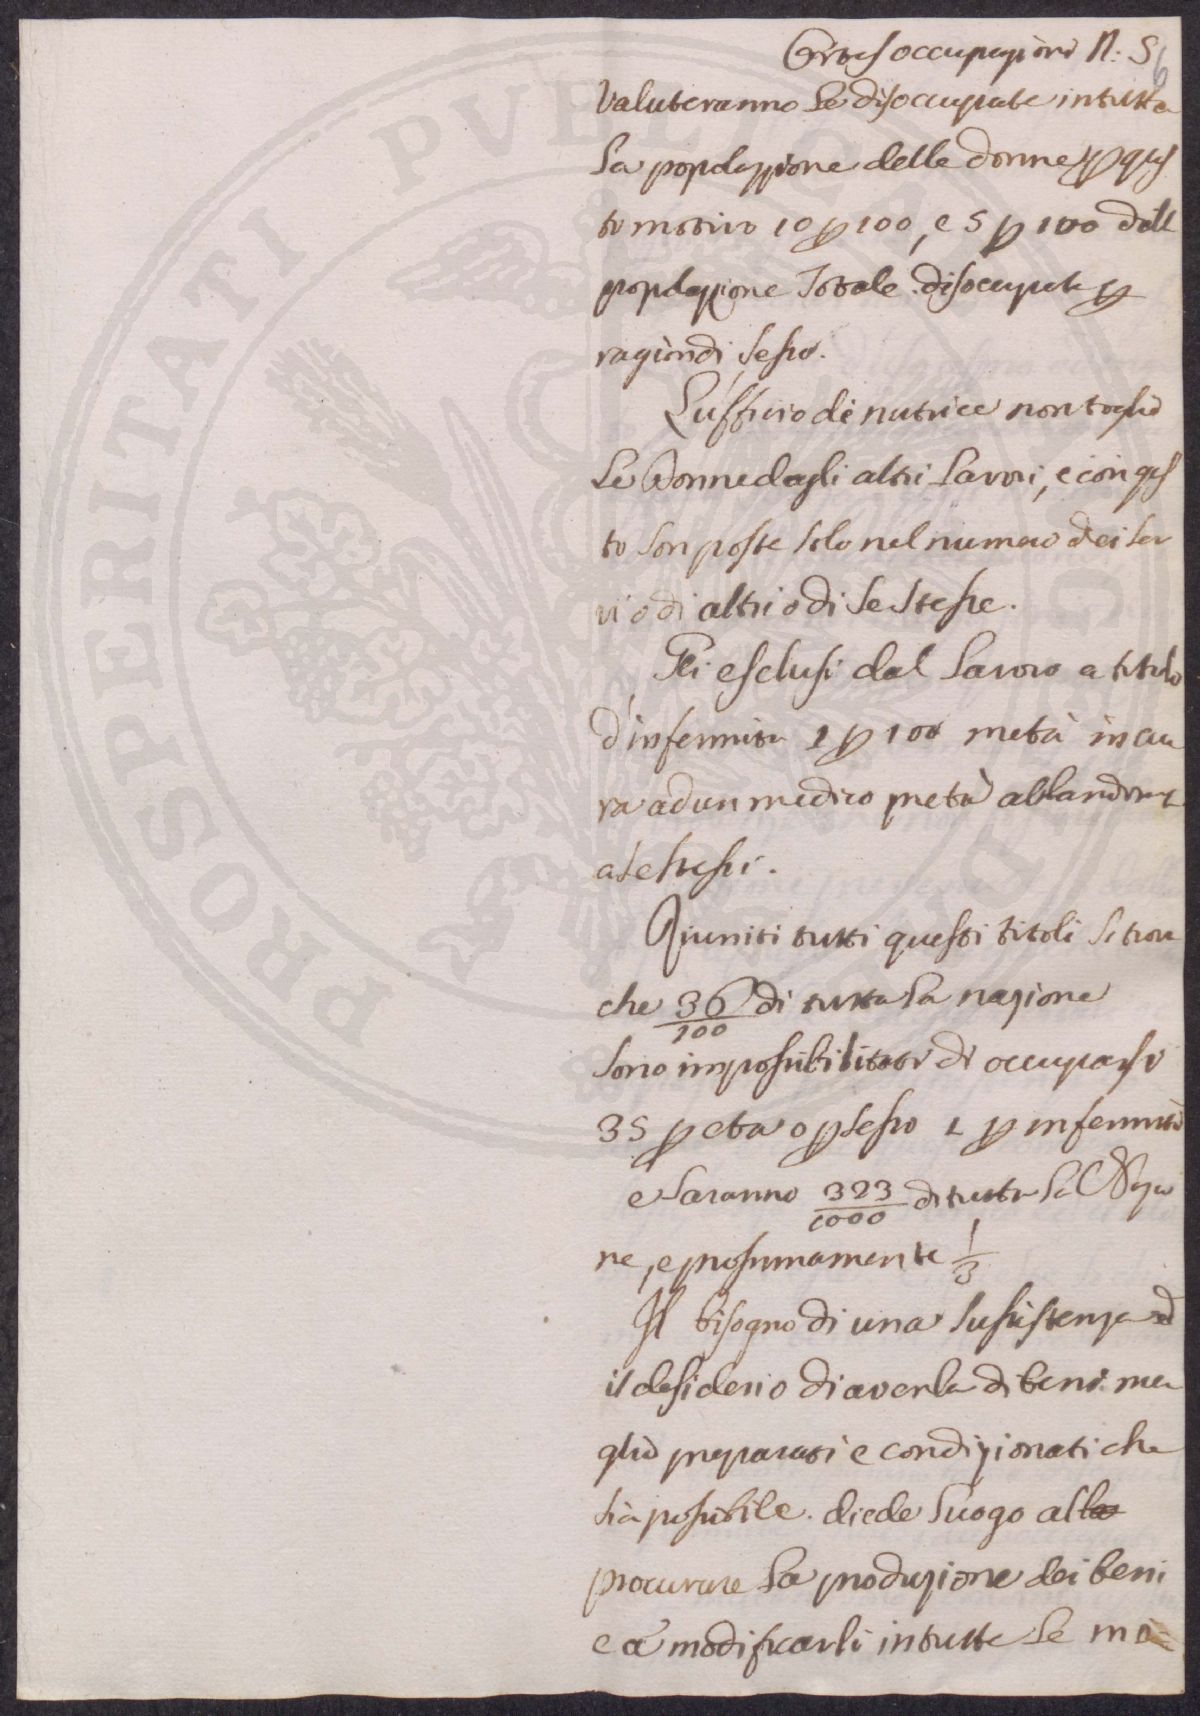 occupazioni N. 5
6
Valuteranno le disoccupate in tutta
la popolazzione delle donne p ques
to motivo 10 p 100, e 5 p 100 dell
popolazzione Totale disoccupate p
ragion di sesso.
L'ufficio di nutrice non toglie
le Donne dagli altri lavori, e con ques
to son poste solo nel numero dei ser
vi o di altri o di se stesse.
Gli esclusi dal lavoro a titolo
d'infermita 1 p 100 metà in cu
ra ad un medico metà abbandonat
a se stessi.
Riuniti tutti questi titoli si trova
che 36/100 di tutta la nazione
sono impossibilitati di occuparsi
35 p eta o p sesso 1 p infermità
e saranno 323/1000 di tutta la Nazio
ne, e prossimamente 1/3
Il bisogno di una sussistenza ed
il desiderio di averla di beni me
glio preparati e condizionati che
sia possibile. diede luogo al
procurare la produzione dei beni
e a modificarli in tutte le ma
PVBLICAE
PROSPERITATI